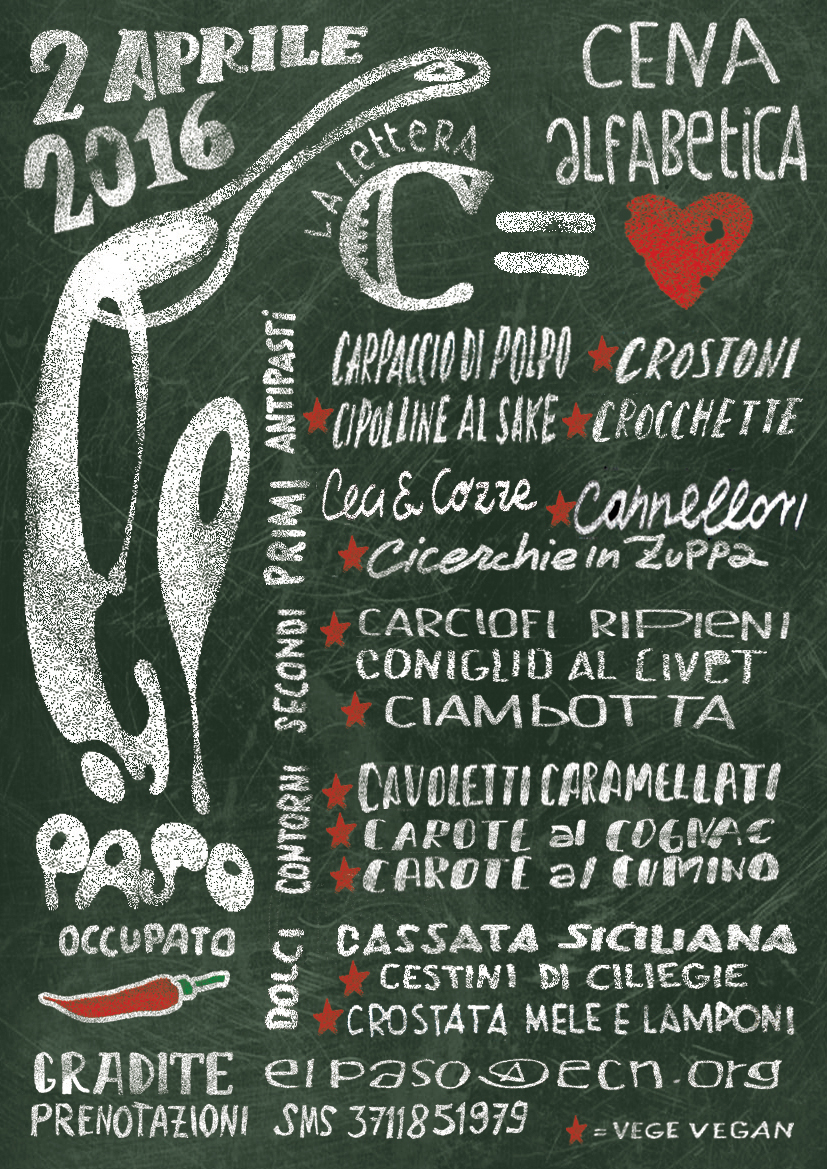 2 APRILE
2016
CENA
ALFABETICA
LA LETTERA
C =
ANTIPASTI
CARPACCIO DI POLPO ★ CROSTONI
★ CIPOLLINE AL SAKE ★ CROCCHETTE
PRIMI
Ceci & Cozze ★ Cannelloni
★ Cicerchie in Zuppa
SECONDI
★ CARCIOFI RIPIENI
CONIGLIO AL CIVET
★ CIAMBOTTA
CONTORNI
★ CAVOLETTI CARAMELLATI
★ CAROTE al COGNAC
★ CAROTE al CUMINO
DOLCI
CASSATA SICILIANA
★ CESTINI DI CILIEGIE
★ CROSTATA MELE E LAMPONI
El PASO
OCCUPATO
GRADITE
PRENOTAZIONI
elpaso@ecn.org
SMS 3711851979
★ = VEGE VEGAN